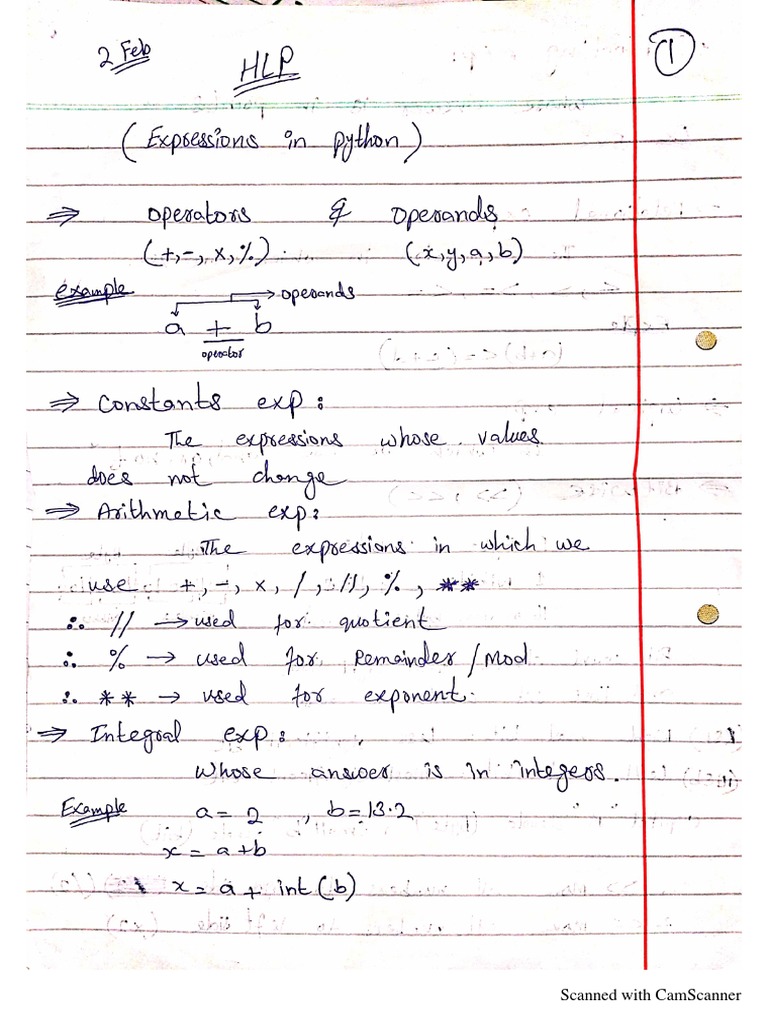 2 Feb
HLP
1
(Expressions in python)
⇒ operators & operands
(+,-, x, %) (x,y,a,b)
example → operands
a + b
operator
⇒ Constants exp :
The expressions whose values
does not change
⇒ Arithmetic exp:
The expressions in which we
use +, -, x, /, //, %, **
∴ // → used for quotient
∴ % → used for Remainder/Mod
∴ ** → used for exponent.
⇒ Integral exp :
Whose answer is in integers.
Example a = 2 , b=13.2
x = a+b
x = a + int(b)
Scanned with CamScanner